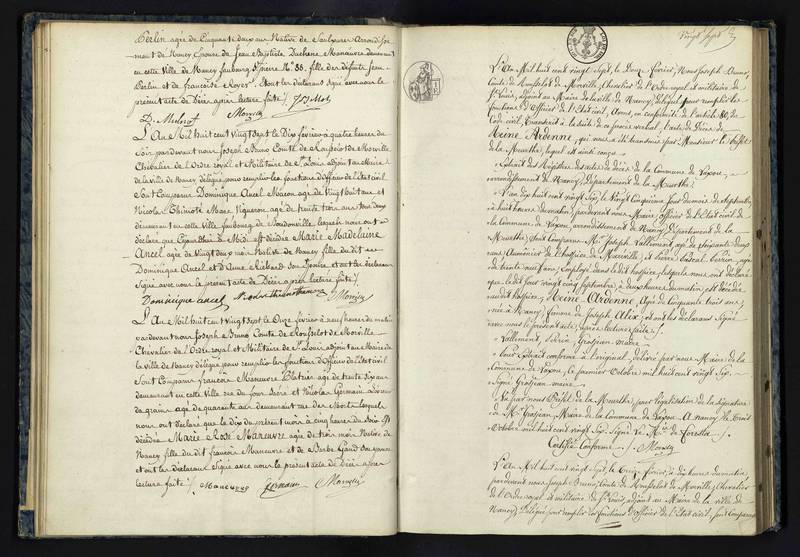 Perlin agée de Cinquante deux ans Native de Saulxures Arrondisse
ment de Nancy Epouse de Jean Baptiste Duchene Manœuvre demeurant
en cette Ville de Nancy faubourg St pierre No 86. fille des défunts Jean
Perlin et de Francoise Royer. et ont les declarans signé avec nous le
présent acte de Décès après lecture faite /.
Morville
L'An Mil huit cent vingt sept le Dix février à quatre heures du
soir pardevant nous Joseph Bruno Comte de Rousselot de Morville
Chevalier de L'Ordre royal et Militaire de St Louis adjoint au Maire
de la Ville de Nancy délégué pour remplir les fonctions d'officier de l'Etat civil
Sont Comparus Dominique Ancel Macon agé de vingt huit ans et
Nicolas Thiriote Marc Vigneron agé de trente trois ans tous deux
demeurant en cette Ville faubourg de Boudonville lesquels nous ont
déclaré que Cejourdhui à Midi est décédée Marie Madelaine
Ancel agée de vingt deux mois Native de Nancy fille du dit
Dominique Ancel et d'Anne Richard son Epouse et ont les declarans
Signé avec nous le présent acte de Décès, après lecture faite /.
Dominique ancel Morville
L'An Mil huit cent vingt sept le Onze février à neuf heures du matin
pardevant nous Joseph Bruno Comte de Rousselot de Morville
Chevalier de L'Ordre royal et Militaire de St Louis adjoint au Maire de
la ville de Nancy délégué pour remplir les fonctions d'officier de l'Etat civil
Sont Comparus francois Maneuvre Platrier agé de trente six ans
demeurant en cette Ville rue du four sacré et Nicolas Germain
de grains agé de quarante ans demeurant rue lesquels
nous ont déclaré que le dix du présent mois à cinq heures du soir est
décédée Marie Rose Maneuvre agée de trois mois Native de
Nancy fille du dit francois Maneuvre et de Barbe Gand son epouse
et ont les declarans signé avec nous le présent acte de Décès après
lecture faite /. Maneuvre Germain Morville
Vingt Sept
L'An Mil huit cent vingt Sept, le Douze Février, Nous Joseph Bruno,
Comte de Rousselot de Morville, Chevalier de l'Ordre royal et militaire de
St Louis, adjoint au Maire de la ville de Nancy, délégué pour remplir les
fonctions d'Officier de l'Etat civil, Avons, en conformité de l'article 80, du
Code civil, transcrit à la suite de ce procès verbal l'acte de Décès de
Reine Ardenne, qui nous a été transmis par Monsieur le Préfet
de la Meurthe, lequel est ainsi conçu.
Extrait des Registres des actes de décès de la Commune de Laxou,
arrondissement de Nancy, Département de la Meurthe.
L'An dix huit cent vingt six, le vingt Cinquième jour du mois de Septembre,
à huit heures du matin, pardevant nous Maire, officier de l'Etat civil de
la Commune de Laxou, arrondissement de Nancy, Département de la
Meurthe, Sont Comparus Mr Joseph Vallement, agé de soixante douze
ans, Aumônier de l'hospice de Maréville, et Pierre Pascal Ferrin, agé
de trente neuf ans, Employé dans le dit hospice, lesquels nous ont déclaré
que le dit jour vingt cinq septembre, à deux heures du matin, est décédée
au dit hospice, Reine Ardenne, Agée de Cinquante trois ans,
née à Nancy, femme de Joseph Alix, et ont les déclarans Signé
avec nous le présent acte, après lecture faite /.
Vallement, Ferrin, Grosjean maire.
Pour Extrait conforme à l'original, délivré par nous Maire de la
Commune de Laxou, le premier Octobre mil huit cent vingt six.
Signé Grosjean maire.
Vu par nous Préfet de la Meurthe, pour légalisation de la Signature
de Mr Grosjean, Maire de la Commune de Laxou. à Nancy le trois
Octobre mil huit cent vingt six. Signé Le Mis de Foresta /.
Certifié Conforme. /. Morville
L'An Mil huit cent vingt Sept, le Treize Février, à dix heures du matin,
pardevant nous Joseph Bruno, Comte de Rousselot de Morville, Chevalier
de l'Ordre royal et militaire de St Louis, adjoint au Maire de la ville de
Nancy, délégué pour remplir les fonctions d'officier de l'Etat civil, sont Comparus